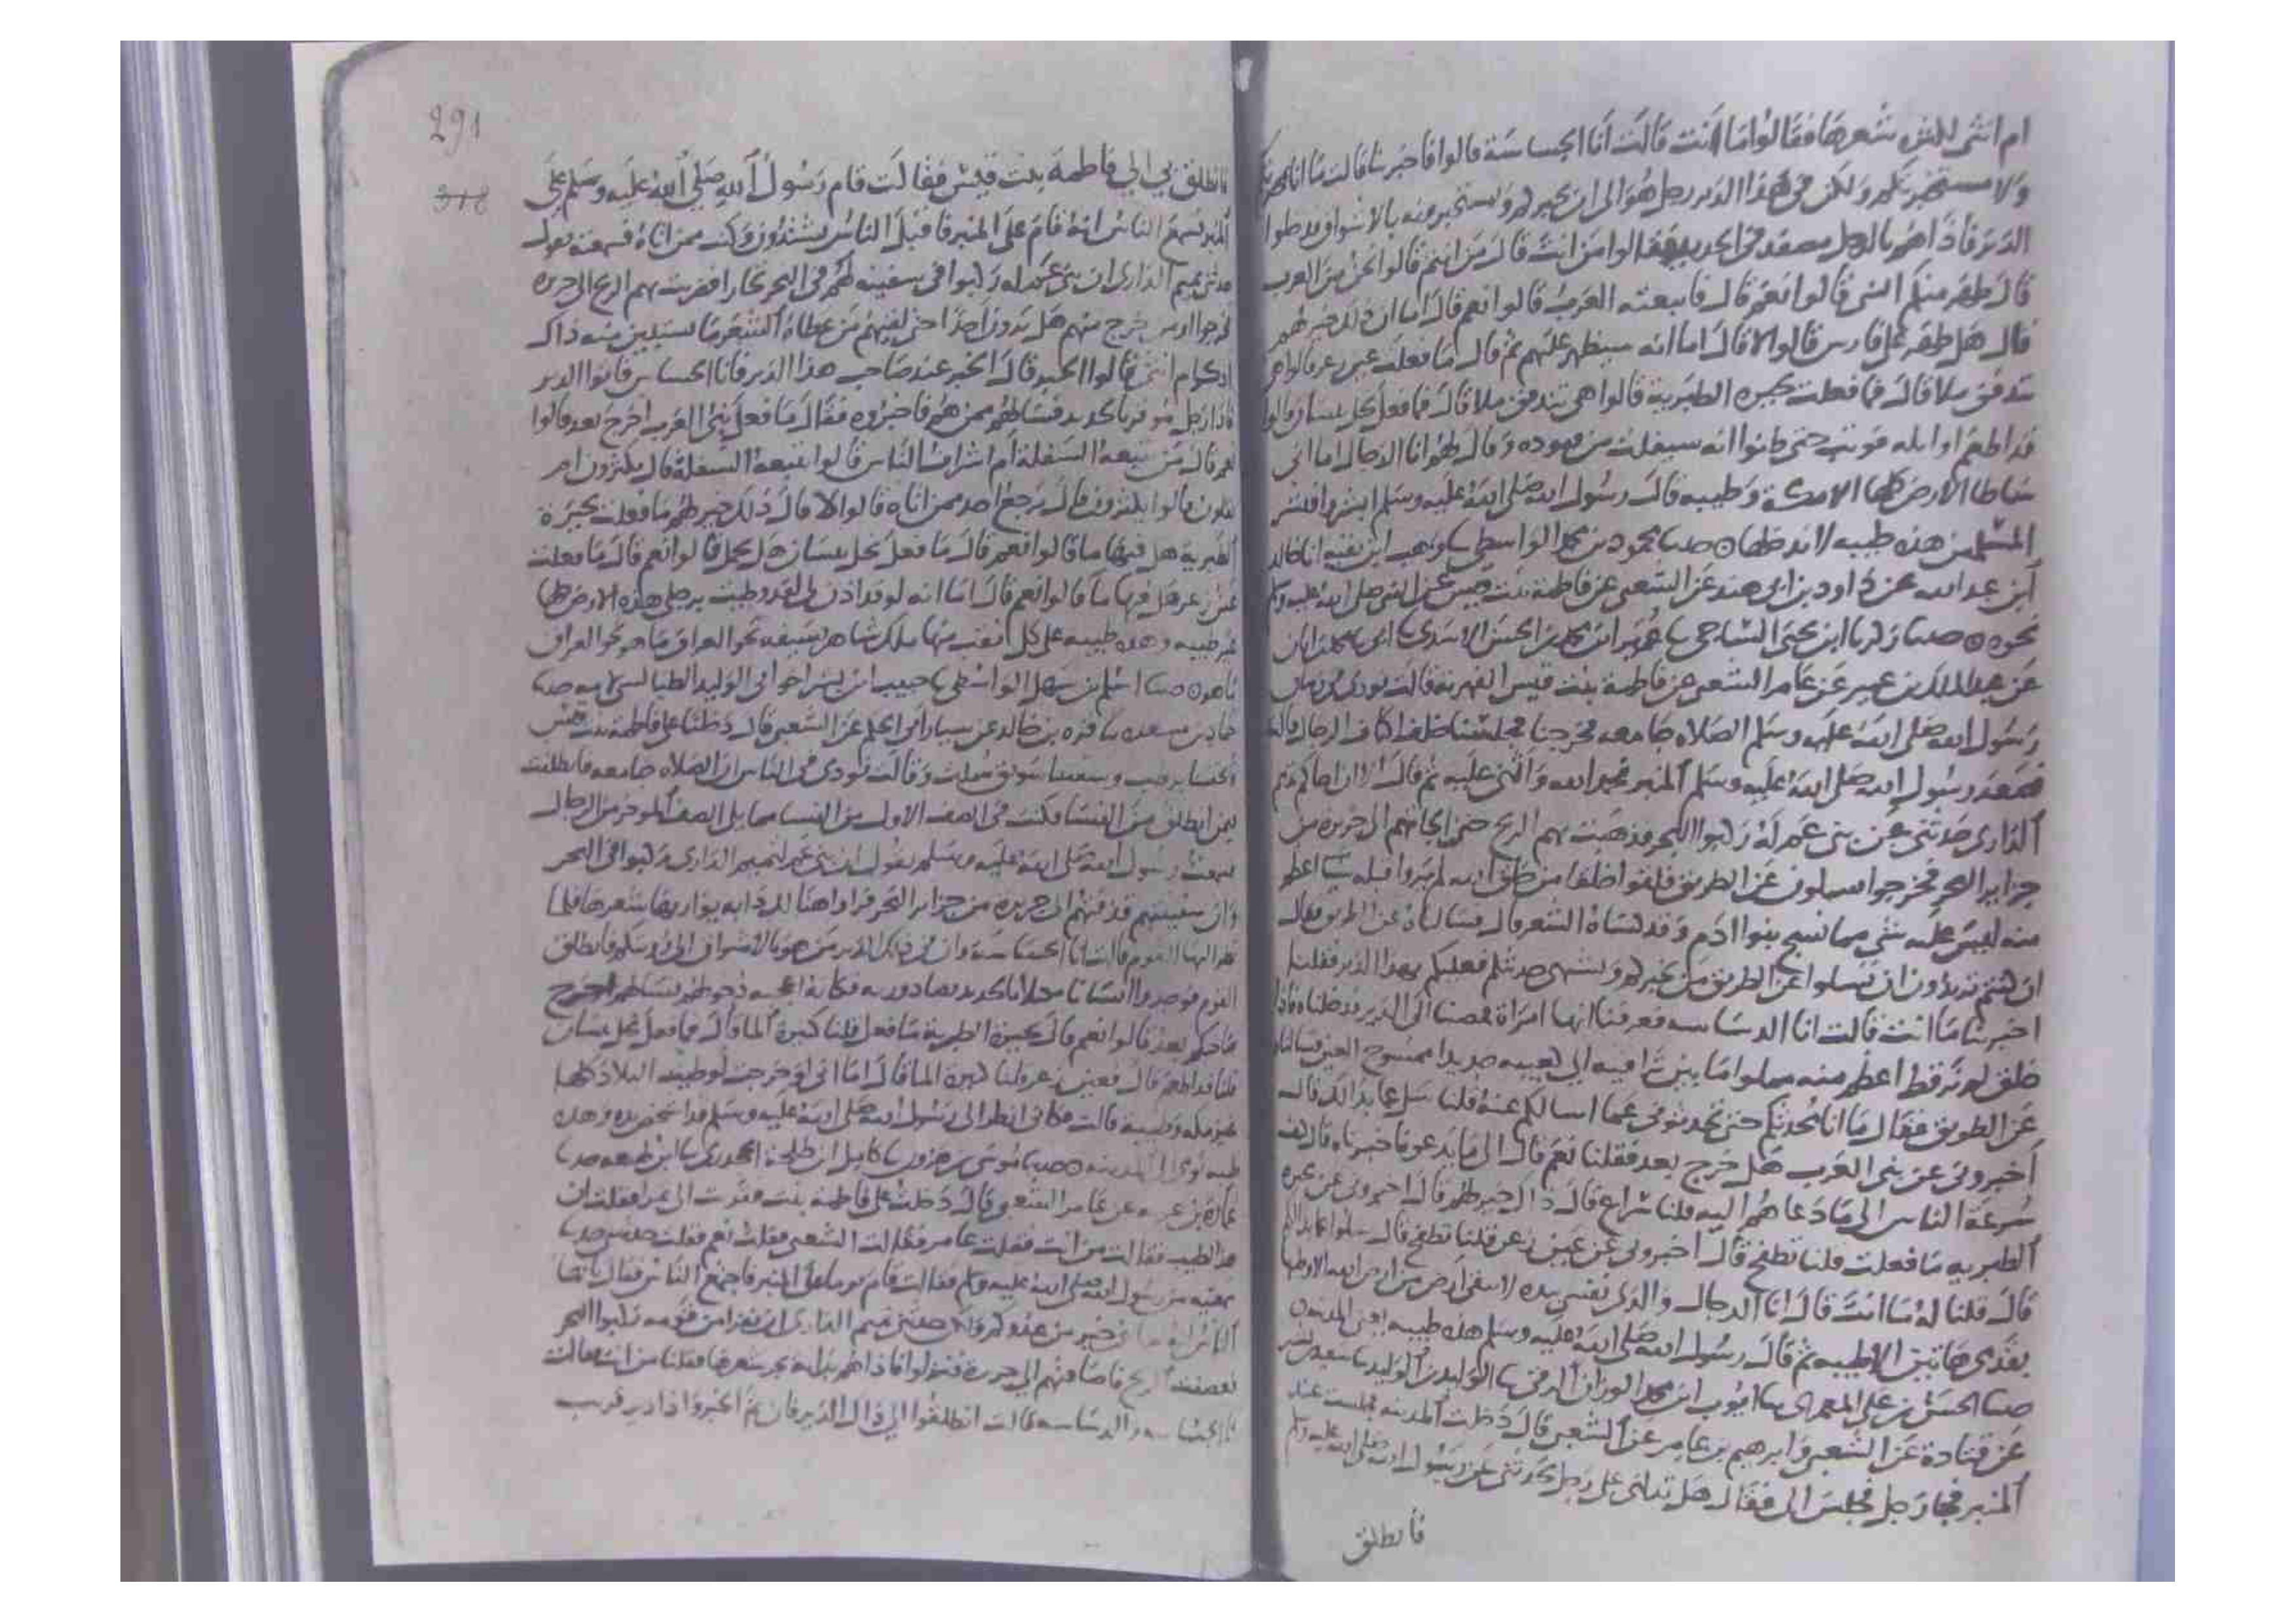 ام انثى لكثره شعرها فقالوا ما انت قالت انا الجساسة قالوا فاخبرينا قالت ما انا بمخبرتكم
ولا مستخبرتكم ولكن في هذا الدير رجل هو الى ان يخبركم ويستخبركم بالاشواق فدخلوا
الدير فاذا هم بالرجل مصفد في الحديد فقالوا من انت قال من انتم قالوا نحن من العرب
قال ظهر منكم النبي قالوا نعم قال فاتبعته العرب قالوا نعم قال اما ان ذلك خير لهم
قال هل ظهر على فارس قالوا لا قال اما انه سيظهر عليهم ثم قال ما فعلت عين زغر قالوا هي
تدفق ملا قال فما فعلت بحيرة الطبرية قالوا هي تتدفق ملا قال فما فعل نخل بيسان قالوا
قد اطعم اوايله فوثب حتى ظنوا انه سيفلت من قيوده وقال لهم انا الدجال اما اني
ساطا الارض كلها الا مكة وطيبه قال رسول الله صلى الله عليه وسلم ابشروا معشر
المسلمين هذه طيبه لا يدخلها حدثنا محمود بن محمد الواسطي وهب ابن بقية انا خالد
ابن عبد الله عن داود بن ابي هند عن الشعبي عن فاطمة بنت قيس عن النبي صلى الله عليه وسلم
نحوه حدثنا زكريا ابن يحيى الساجي عمر ابن محمد بن الحسن الاسدي ابي محمد بن ابان
عن عبد الملك بن عمير عن عامر الشعبي عن فاطمة بنت قيس الفهرية قالت نودي
رسول الله صلى الله عليه وسلم الصلاه جامعه فخرجنا فجلسنا خلف اكتاف الرجال قالت
فصعد رسول الله صلى الله عليه وسلم المنبر فحمد الله واثنى عليه ثم قال ان اخاكم تميم
الداري حدثني عن بني عم له ركبوا البحر فذهبت بهم الريح حتى الجاتهم الى جزيره من
جزاير البحر فخرجوا يسلون عن الطريق فلقوا خلقا من خلق الله لم يروا قبله شيا اعظم
منه ليس عليه شي مما نسج بنوا ادم وقد كساه الشعر قال فسالناه عن الطريق فقال
ان كنتم تريدون ان تسلوا عن الطريق من يخبركم ويشتهي حديثكم فعليكم بهذا الدير فقلنا
اخبرينا ما انت قالت انا الدساسه فعرفنا انها امراة فمضينا الى الدير فدخلناه فاذا
خلق لم نر قط اعظم منه مملوا ما بين ترقيه الى كعبيه حديدا ممسوح العين فسالناه
عن الطريق فقال ما انا بمحدثكم حتى تحدثوني عما اسالكم عنه قلنا سل عما بدا لك قال
اخبروني عن نبي العرب هل خرج بعد فقلنا نعم قال الى ما يدعو فاخبرناه قال كيف
سرعة الناس الى ما دعاهم اليه قلنا سراع قال ذاك خير لهم قال اخبروني عن بحيره
الطبريه ما فعلت قلنا تطفح قال اخبروني عن عين زعر قلنا تطفح قال سلوا عما بدا لكم
قال قلنا له ما انت قال انا الدجال والذي نفسي بيده لا تبقى ارض من ارض الله الا وطيها
بقدمي هاتين الا طيبه ثم قال رسول الله صلى الله عليه وسلم هذه طيبه يعني المدينه
حدثنا الحسن بن علي المعمري ايوب ابن محمد الوزان الرقي الوليد بن الوليد سعيد بن بشير
عن قتادة عن الشعبي وابرهيم بن عامر عن الشعبي قال دخلت المدينه فجلست عند
المنبر فجا رجل فجلس الي فقال هل تدلني على رجل يحدثني عن رسول الله صلى الله عليه وسلم
فانطلق
291
318
فانطلق بي الى فاطمة بنت قيس فقالت قام رسول الله صلى الله عليه وسلم على
المنبر فسمع الناس انه قام على المنبر فاقبل الناس يشتدون وكنت ممن اتاه فسمعته يقول
حدثني تميم الداري ان بني عم له ركبوا في سفينه لهم في البحر تجارا فضربت بهم الريح الى جزيره
فخرجوا خرج منهم هل يرون احدا حتى لقيهم من غطاه الشعر ما يستبين منه ذاكر
ام انثى قالوا الخبر قال الخبر عند صاحب هذا الدير فانا الجساس فاتوا الدير
فاذا رجل موقر بالحديد فسالهم ممن هم فاخبروه فقال ما فعل نبي العرب اخرج بعد قالوا
نعم قال من تبعه السفلة ام اشراف الناس قالوا تبعه السفلة قال يكثرون ام
يقلون قالوا يكثرون قال يرجع احد ممن اتاه قالوا لا قال ذلك خير لهم ما فعلت بحيرة
الطبرية هل فيها ما قالوا نعم قال ما فعل نخل بيسان هل يحمل قالوا نعم قال ما فعلت
عين زعر هل فيها ما قالوا نعم قال اما انه لو قد اذن لي لقد وطيت برجلي هذه الارض كلها
غير طيبه وهذه طيبه على كل نقب منها ملك شاهر سيفه نحو العراق ما هو نحو العراق
ما هو حدثنا اسلم بن سهل الواسطي حبيب ابن بشر اخو ابي الوليد الطيالسي حدثنا
حماد بن مسعده قره بن خالد عن سيار ابي الحكم عن الشعبي قال دخلنا على فاطمة بنت قيس
وسقتنا سويق سلت وقالت نودي في الناس ان الصلاه جامعه فانطلقت
فيمن انطلق من النسا فكنت في الصف الاول من النسا مما يلي الصف الموخر من الرجال
سمعت رسول الله صلى الله عليه وسلم يقول ان بني عم لتميم الداري ركبوا في البحر
وان سفينتهم قذفتهم الى جزيره من جزاير البحر فراوا هنالك دابه يواريها شعرها فلما
القوم قالت انا الجساسه وان في ذلك الدير من هو بالاشواق الى فانطلق
القوم فوجدوا انسانا بالحديد
قالوا نعم قال بحيرة الطبرية ما فعل قلنا كثيرة الما قال فما فعل نخل بيسان
قلنا قد اطعم قال فعين زعر قلنا كثيرة الما قال اما اني لو خرجت لوطيت البلاد كلها
غير مكه وطيبه قالت فكاني انظر الى رسول الله صلى الله عليه وسلم قد اشخص يده وهذه
طيبه المدينه حدثنا موسى بن هرون كامل ابن طلحة الجحدري ابن لهيعه حدثنا
عمارة بن غزيه عن عامر الشعبي قال دخلت على فاطمة بنت
فقالت من انت فقلت عامر فقالت الشعبي فقلت نعم فقلت
من رسول الله صلى الله عليه وسلم فقالت قام يوما على المنبر فاجتمع الناس فقال يا ايها
الناس حدثني تميم الداري ان نفرا من قومه ركبوا البحر
فعصفت الريح فاضافتهم الى جزيره فنزلوا فاذا هم بدابه تجر شعرها فقلنا من انت قالت
انا الجساسه والدساسه قالت انطلقوا الى ذاك الدير فان ثم دير قريب